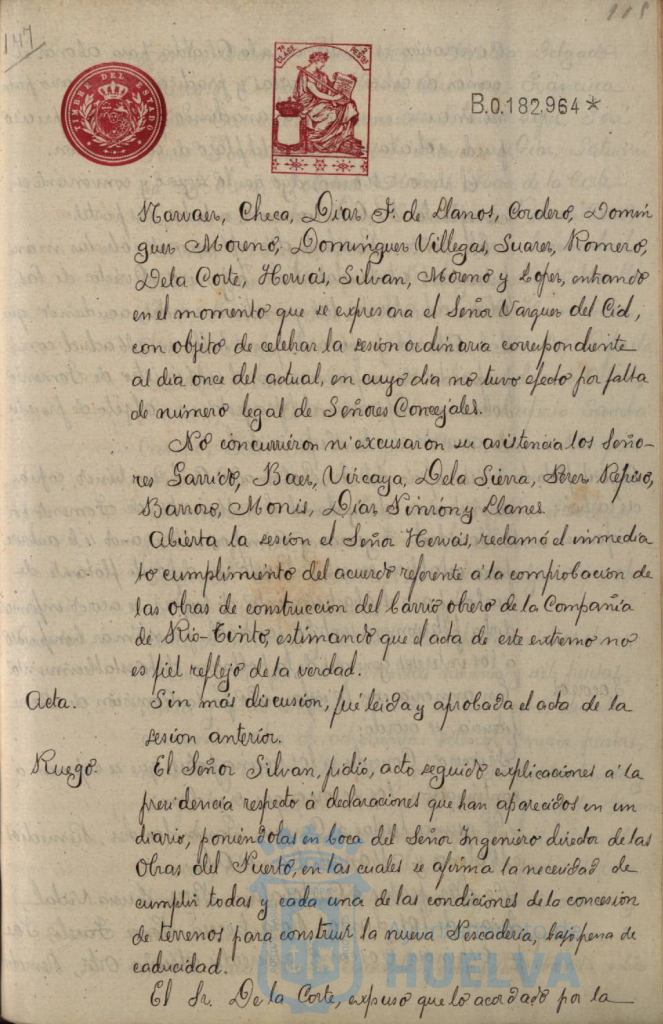 147
115
TIMBRE DEL ESTADO
7ª CLASE
2 PESTAS
B.0.182,964*
Narvaez, Checa, Diaz F. de Llanos, Cordero, Domin
guez Moreno, Dominguez Villegas, Suarez, Romero,
De la Corte, Hervás, Silvan, Moreno y Lopez, entrando
en el momento que se expresará el Señor Vazquez del Cid,
con objeto de celebrar la sesion ordinaria correspondiente
al dia once del actual, en cuyo dia no tuvo efecto por falta
de número legal de Señores Concejales.
No concurrieron ni excusaron su asistencia los Seño-
res Garrido, Baez, Vizcaya, De la Sierra, Perez Repiso,
Barroso, Monis, Diaz Pinzón y Llanes.
Abierta la sesion el Señor Hervás, reclamó el inmedia
to cumplimiento del acuerdo referente á la comprobacion de
las obras de construccion del barrio obrero de la Compañia
de Rio-Tinto, estimando que el acta de este extremo no
es fiel reflejo de la verdad.
Acta. Sin más discusion, fué leida y aprobada el acta de la
sesion anterior.
Ruego. El Señor Silvan, pidió, acto seguido explicaciones á la
presidencia respecto á declaraciones que han aparecidos en un
diario, poniéndolas en boca del Señor Ingeniero director de las
Obras del Puerto, en las cuales se afirma la necesidad de
cumplir todas y cada una de las condiciones de la concesion
de terrenos para construir la nueva Pescaderia, bajo pena de
caducidad.
HUELVA
El Sr. De la Corte, expuso que lo acordado por la